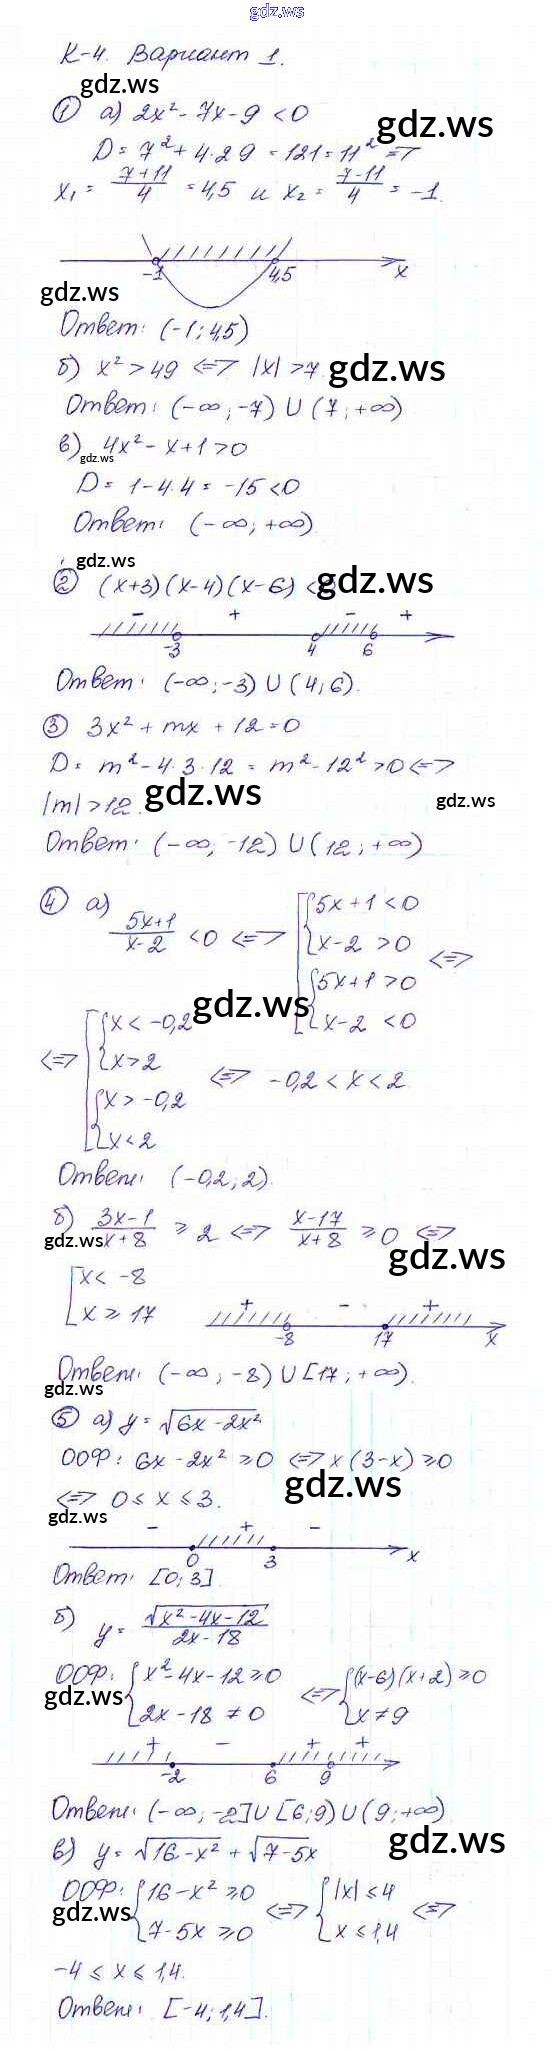 gdz.ws
К-4. Вариант 1.
gdz.ws
① а) 2x² - 7x - 9 < 0
gdz.ws
D = 7² + 4·2·9 = 121 = 11² =>
x₁ = (7+11)/4 = 4,5 и x₂ = (7-11)/4 = -1.
-1 4,5 x
gdz.ws
Ответ: (-1; 4,5)
б) x² > 49 <=> |x| > 7
gdz.ws
Ответ: (-∞; -7) ∪ (7; +∞)
в) 4x² - x + 1 > 0
gdz.ws
D = 1 - 4·4 = -15 < 0
Ответ: (-∞; +∞).
gdz.ws
② (x+3)(x-4)(x-6) <
gdz.ws
- + - +
-3 4 6
Ответ: (-∞; -3) ∪ (4; 6).
③ 3x² + mx + 12 = 0
D = m² - 4·3·12 = m² - 12² > 0 <=>
|m| > 12.
gdz.ws
gdz.ws
Ответ: (-∞; -12) ∪ (12; +∞)
④ а) (5x+1)/(x-2) < 0 <=> [ { 5x+1 < 0
x-2 > 0
{ 5x+1 > 0
x-2 < 0 <=>
gdz.ws
<=> [ { x < -0,2
x > 2
{ x > -0,2
x < 2 <=> -0,2 < x < 2.
Ответ: (-0,2; 2).
б) (3x-1)/(x+8) ≥ 2 <=> (x-17)/(x+8) ≥ 0 <=>
gdz.ws
gdz.ws
[ x < -8
x ≥ 17
+ - +
-8 17 x
Ответ: (-∞; -8) ∪ [17; +∞).
gdz.ws
⑤ а) y = √(6x - 2x²)
ООФ: 6x - 2x² ≥ 0 <=> x(3-x) ≥ 0
gdz.ws
<=> 0 ≤ x ≤ 3.
gdz.ws
- + -
0 3 x
Ответ: [0; 3]
б) y = √(x² - 4x - 12)/(2x - 18)
ООФ: { x² - 4x - 12 ≥ 0
2x - 18 ≠ 0 <=> { (x-6)(x+2) ≥ 0
x ≠ 9
gdz.ws
+ - + +
-2 6 9
Ответ: (-∞; -2] ∪ [6; 9) ∪ (9; +∞)
gdz.ws
в) y = √(16 - x²) + √(7 - 5x)
ООФ: { 16 - x² ≥ 0
7 - 5x ≥ 0 <=> { |x| ≤ 4
x ≤ 1,4 <=>
gdz.ws
-4 ≤ x ≤ 1,4.
Ответ: [-4; 1,4].